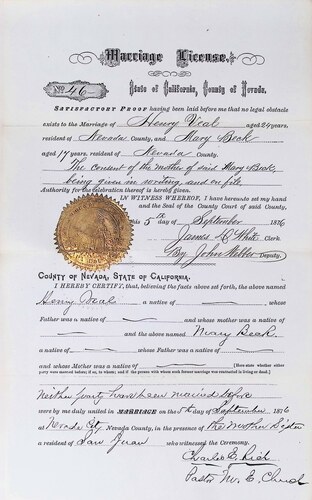 Marriage License.
No. 46
State of California, County of Nevada.
SATISFACTORY PROOF having been laid before me that no legal obstacle
exists to the Marriage of Henry Veal aged 24 years,
resident of Nevada County, and Mary Beak
aged 17 years, resident of Nevada County.
The consent of the mother of said Mary Beak,
being given in writing and on file.
Authority for the celebration thereof is hereby given.
IN WITNESS WHEREOF, I have hereunto set my hand
and the Seal of the County Court of said County,
this 5th day of September 1876
James C. White Clerk.
By John Webber Deputy.
COUNTY OF NEVADA, STATE OF CALIFORNIA.
I HEREBY CERTIFY, that, believing the facts above set forth, the above named
Henry a native of whose
Father was a native of and whose mother was a native of
and the above named Mary Beak
a native of whose Father was a native of
and whose Mother was a native of [Here state whether either
party were married before; if so, to whom; and if the person with whom such former marriage was contracted is living or dead.]
Neither party have been married before
were by me duly united in MARRIAGE on the day of September 1876
at Nevada City, Nevada County, in the presence of the Mother
a resident of San Juan who witnessed the Ceremony.
Pastor M. E. Church